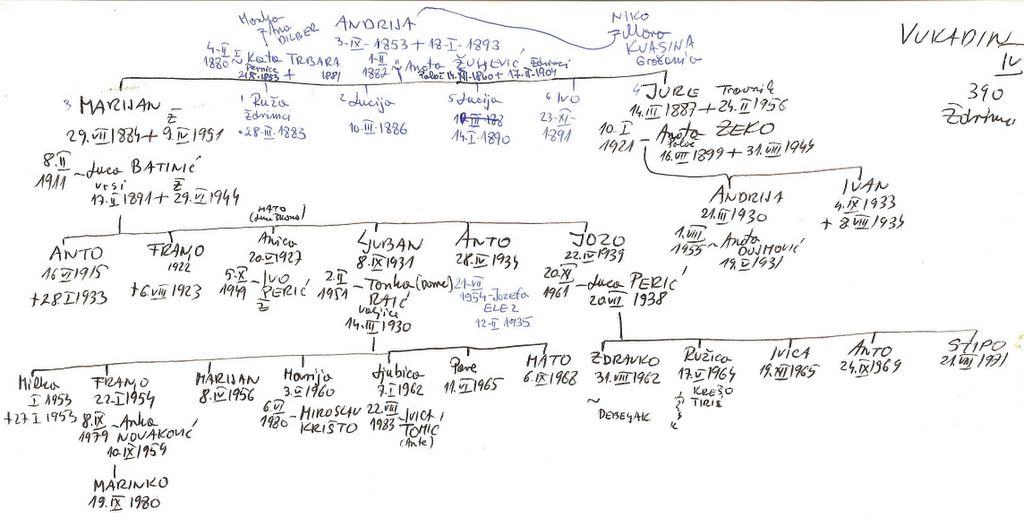 VUKADIN
IV
390
Ždrimci
ANDRIJA
3-IX-1853 + 18-I-1893
NIKO
Mara
KVASINA
Gračanica
DILBER
4-II
1880 ~ Kata TRBARA
1-II
1882 ~ Aneta
Ždrimci
3 MARIJAN Ž
29.VII 1884 + 9.IV 1951
8.II
1911 ~ Luca BATINIĆ
Vrsi Ž
17.II 1891 + 29.VI 1944
1 Ruža
Ždrimci
28-III-1883
2 Lucija
10-III-1886
5 Lucija
14-I-1890
6 IVO
23-XI-
1891
4 JURE Travnik
14.III 1887 + 24.II 1956
10.I
1921 ~ Aneta ZEKO
16.VII 1899 + 31.VIII 1944
ANDRIJA
21.III 1930
1.VIII
1955 ~ Aneta
DUJMOVIĆ
19.I 1931
IVAN
4.IX 1933
+ 8.VIII 1934
ANTO
16.VI 1915
+ 28.I 1933
FRANJO
1922
+ 6.VIII 1923
MATO
Anica
20.V 1927
5.X
1949 ~ IVO
PERIĆ
Ž
LJUBAN
8.IX 1931
2.II
1951 ~ Tonka (Dome)
RAIĆ
Valjice
14.III 1930
ANTO
28.IV 1934
21-VII
1954 ~ Jozefa
ELEZ
12-II 1935
JOZO
22.IV 1939
20.XI
1961 ~ Luca PERIĆ
20.VII 1938
Milka
I 1953
+ 27 I 1953
FRANJO
22.I 1954
8.IX
1979 ~ Anka
NOVAKOVIĆ
10.IX 1959
MARINKO
19.IX 1980
MARIJAN
8.IV 1956
Marija
3.VI 1960
6.VI
1980 ~ MIROSLAV
KRIŠTO
Ljubica
7.I 1962
22.VIII
1983 ~ IVICA
TOMIĆ
(Ante)
Pero
11.VI 1965
MATO
6.IX 1968
ZDRAVKO
31.VIII 1962
~ DEBELJAK
Ružica
17.V 1964
KREŠO
TIRIŠ
IVICA
19.XII 1965
ANTO
24.IX 1969
STIPO
21.VIII 1971